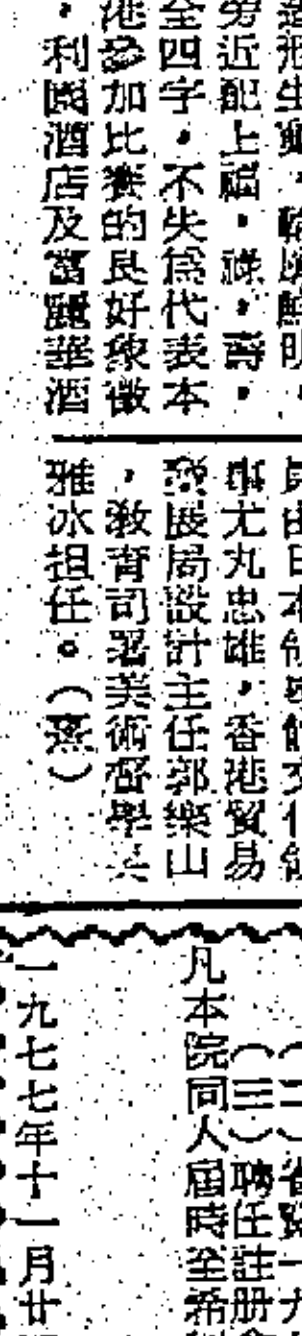 造形生動,鮮明,
旁近配上福,祿,壽,
全四字,不失為代表本
港參加比賽的良好象徵
,利園酒店及富麗華酒
員由日本領事館文化領
事尤丸忠雄,香港貿易
發展局設計主任郭樂山
,教育司署美術督學
雅冰担任。(燕)
(二)
(三)聘任註册
凡本院同人屆時至希
一九七七年十一月廿